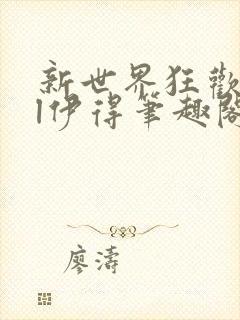 新世界狂歡
l伊得筆趣閣
廖濤